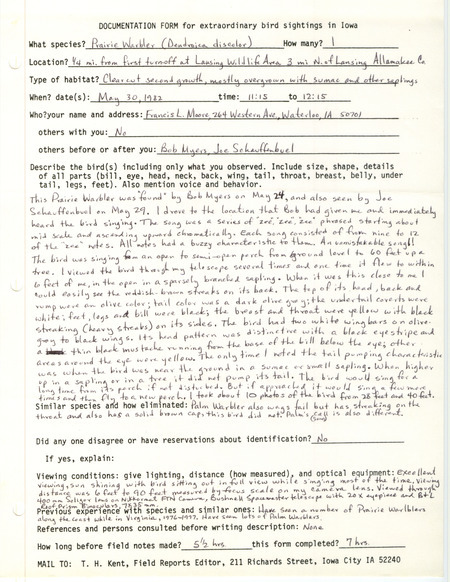 DOCUMENTATION FORM for extraordinary bird sightings in Iowa
What species? Prairie Warbler (Dendroica discolor) How many? 1
Location? 1/4 mi. from first turnoff at Lansing Wildlife Area 3 mi N. of Lansing Allamakee Co
Type of habitat? Clearcut second growth, mostly overgrown with sumac and other saplings
When? date(s): May 30, 1982 time: 11:15 to 12:15
Who? your name and address: Francis L. Moore, 264 Western Ave, Waterloo, IA 50701
others with you: No
others before or after you: Bob Myers, Joe Schaufenbuel
Describe the bird(s) including only what you observed. Include size, shape, details
of all parts (bill, eye, head, neck, back, wing, tail, throat, breast, belly, under
tail, legs, feet). Also mention voice and behavior.
This Prairie Warbler was "found" by Bob Myers on May 24, and also seen by Joe
Schaufenbuel on May 29. I drove to the location that Bob had given me and immediately
heard the bird singing. The song was a series of "zee, zee, zee" phrased starting about
mid scale and ascending upward chromatically. Each song consisted of from nine to 12
of the "zee" notes. All notes had a buzzy characteristic to them. An unmistakable song!!
The bird was singing from an open to semi-open perch from ground level to 60 feet up a
tree. I viewed the bird through my telescope several times and one time it flew to within
6 feet of me, in the open in a sparsely branched sapling. When it was this close to me I
could easily see the reddish brown streaks on its back. The top of its head, back and
rump were an olive color; tail color was a dark olive gray; the undertail coverts were
white; feet, legs and bill were black; the breast and throat were yellow with black
streaking (heavy streaks) on its sides. The bird had two white wingbars on olive-
gray to black wings. Its head pattern was distinctive with a black eyestripe and
a thin black mustache running from the base of the bill below the eye; other
areas around the eye were yellow. The only time I noted the tail pumping characteristic
was when the bird was near the ground in a sumac or small sapling. When higher
up in a sapling or in a tree it did not pump its tail. The bird would sing for a
long time from its perch if not disturbed. But if approached it would sing a few more
times and then fly to a new perch. I took about 10 photos of the bird from 28 feet and 40 feet.
Similar species and how eliminated: Palm Warbler also wags tail but has streaking on the
throat and also has a solid brown cap; this bird did not. Palm's call is also different.
(Song)
Did any one disagree or have reservations about identification? No
If yes, explain:
Viewing conditions: give lighting, distance (how measured), and optical equipment: Excellent
viewing, sun shining with bird sitting out in full view while singing most of the time. Viewing
distance was 6 feet to 90 feet measured by focus scale on my camera lens. Viewed through
400 mm Soligor lens on Nikkormat FTN Camera, Bushnell Spacemaster telescope with 20x eyepiece and B+L
Roof Prism Binoculars, 7x35 mm
Previous experience with species and similar ones: Have seen a number of Prairie Warblers
along the coast while in Virginia, 1976-1977, have seen lots of Palm Warblers
References and persons consulted before writing description: None.
How long before field notes made? 5 1/2 hrs. this form completed? 7 hrs.
MAIL TO: T. H. Kent, Field Reports Editor, 211 Richards Street, Iowa City IA 52240